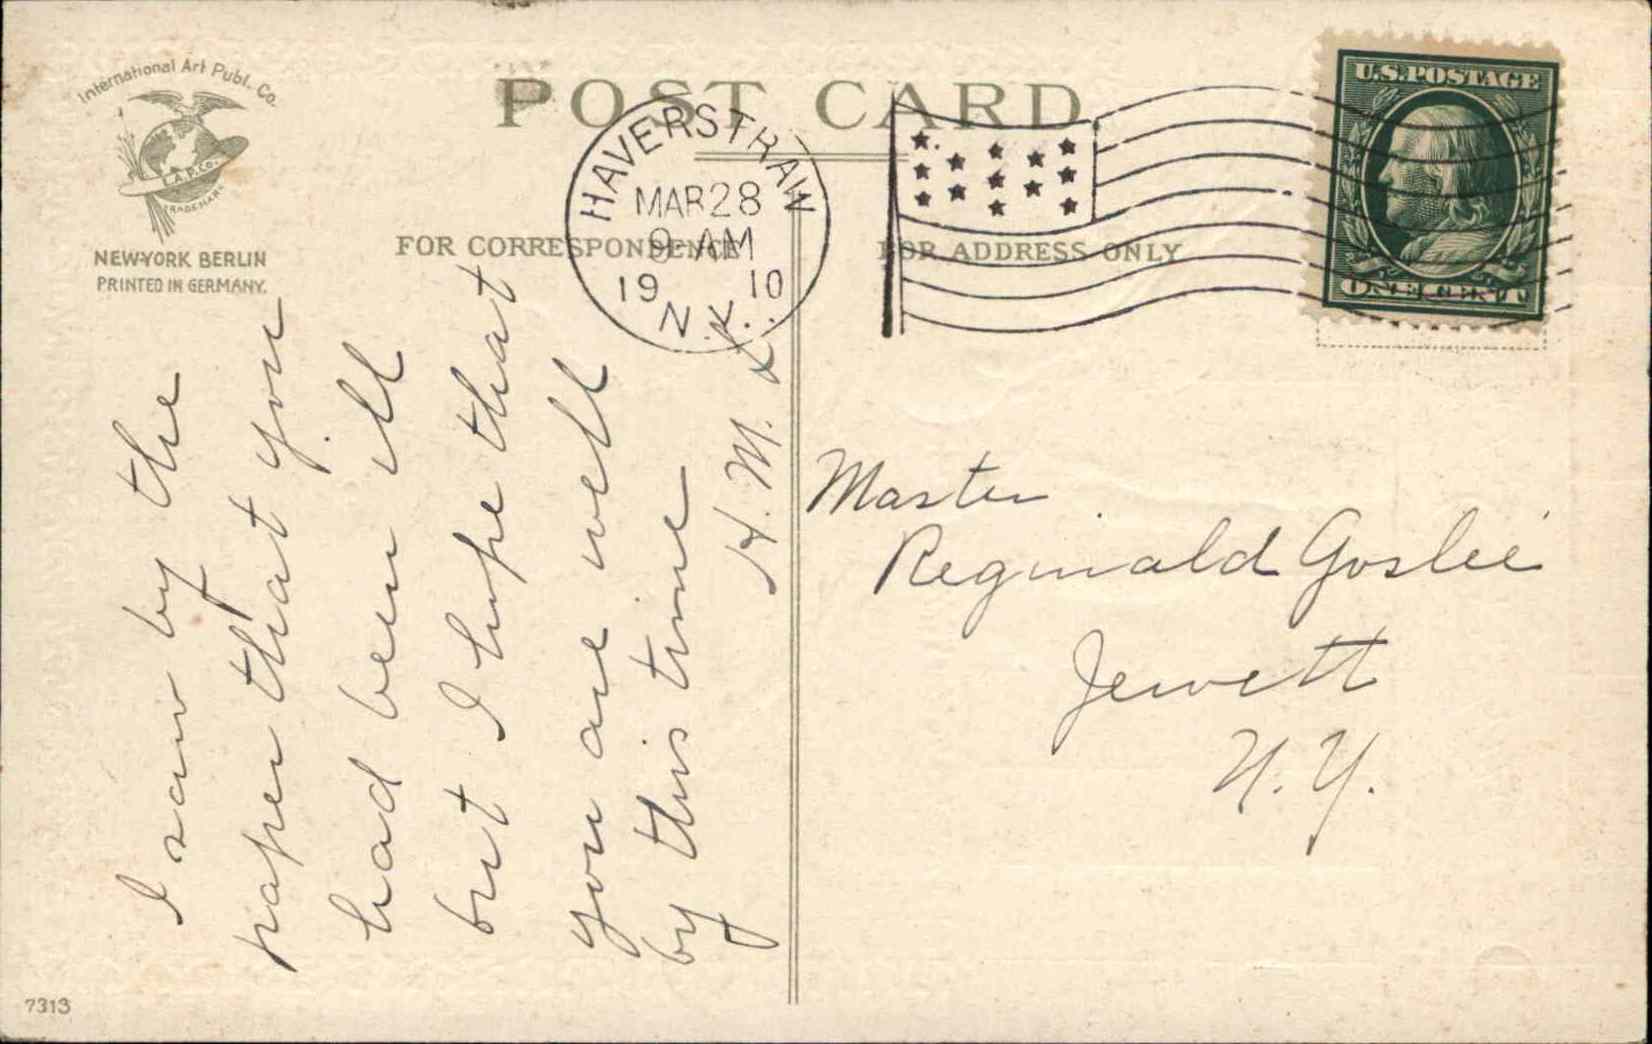 International Art Publ. Co.
I.A.P.Co.
TRADEMARK
NEW-YORK BERLIN
PRINTED IN GERMANY.
POST CARD
FOR CORRESPONDENCE
FOR ADDRESS ONLY
HAVERSTRAW
MAR 28
9-AM
1910
N.Y.
U.S. POSTAGE
ONE CENT
I saw by the
paper that you
had been ill
but I hope that
you are well
by this time
H. M. L.
Master
Reginald Goslee
Jewett
N. Y.
7313